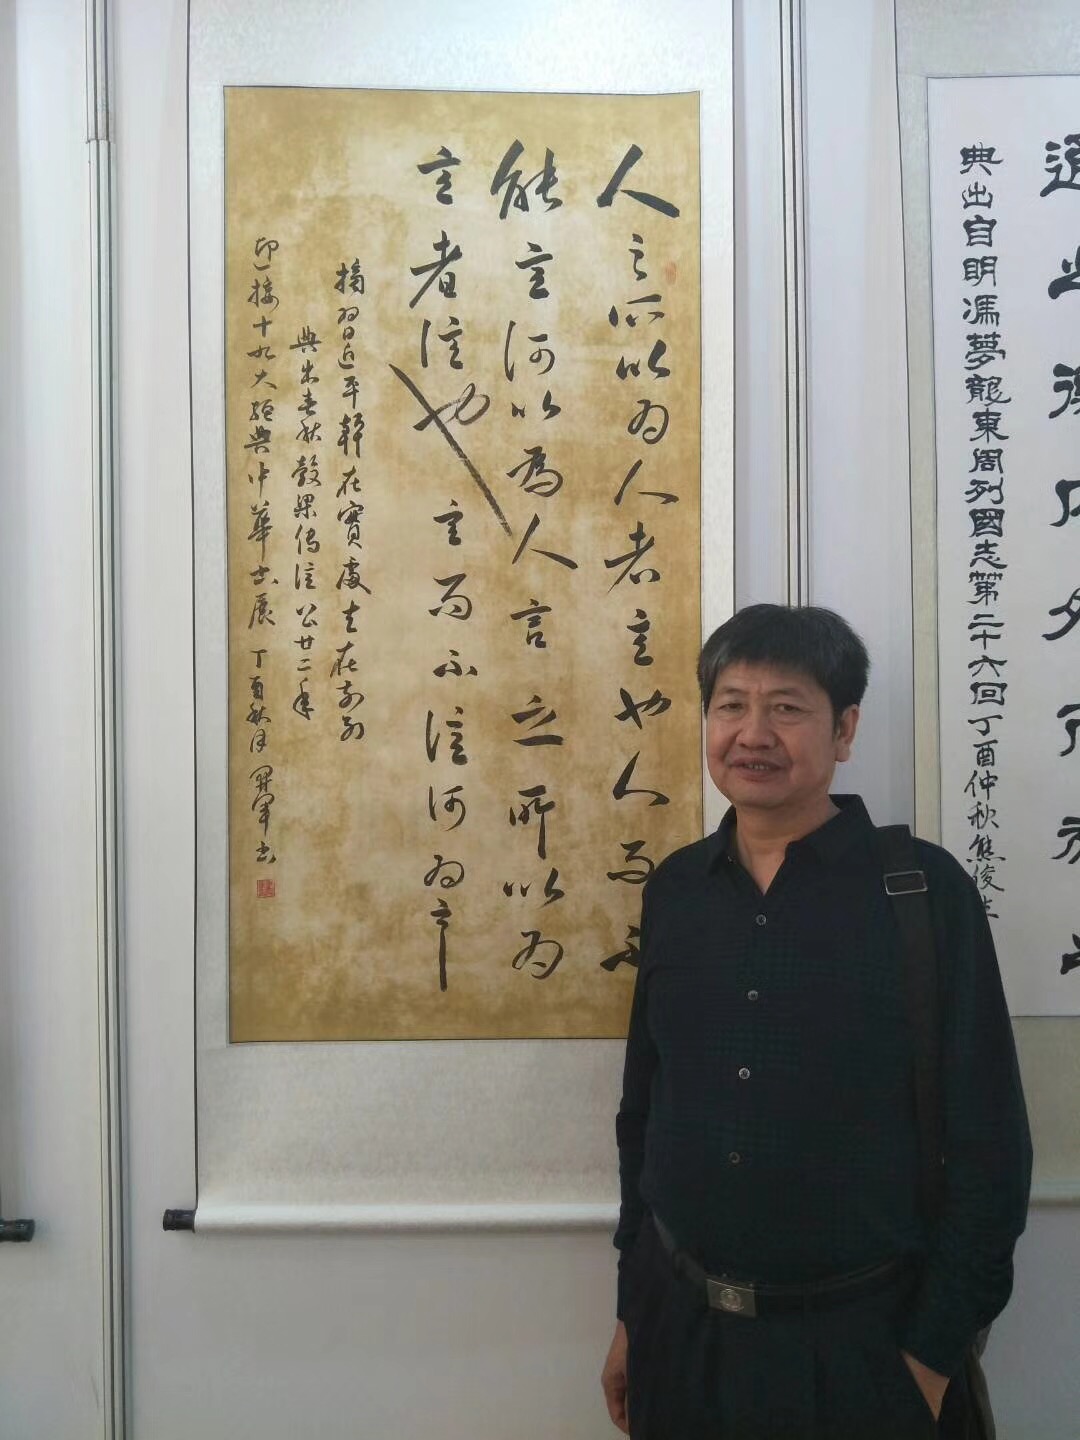 人之所以为人者言也人而不
能言何以為人言之所以为
言者信也言而不信何为言
摘習近平幹在實處走在前列
典出春秋穀梁傳信公廿二年
印接十九大經典中華書展丁酉秋月 軍书
典出自明馮夢龍東周列國志第二十六回丁酉仲秋熊俊生